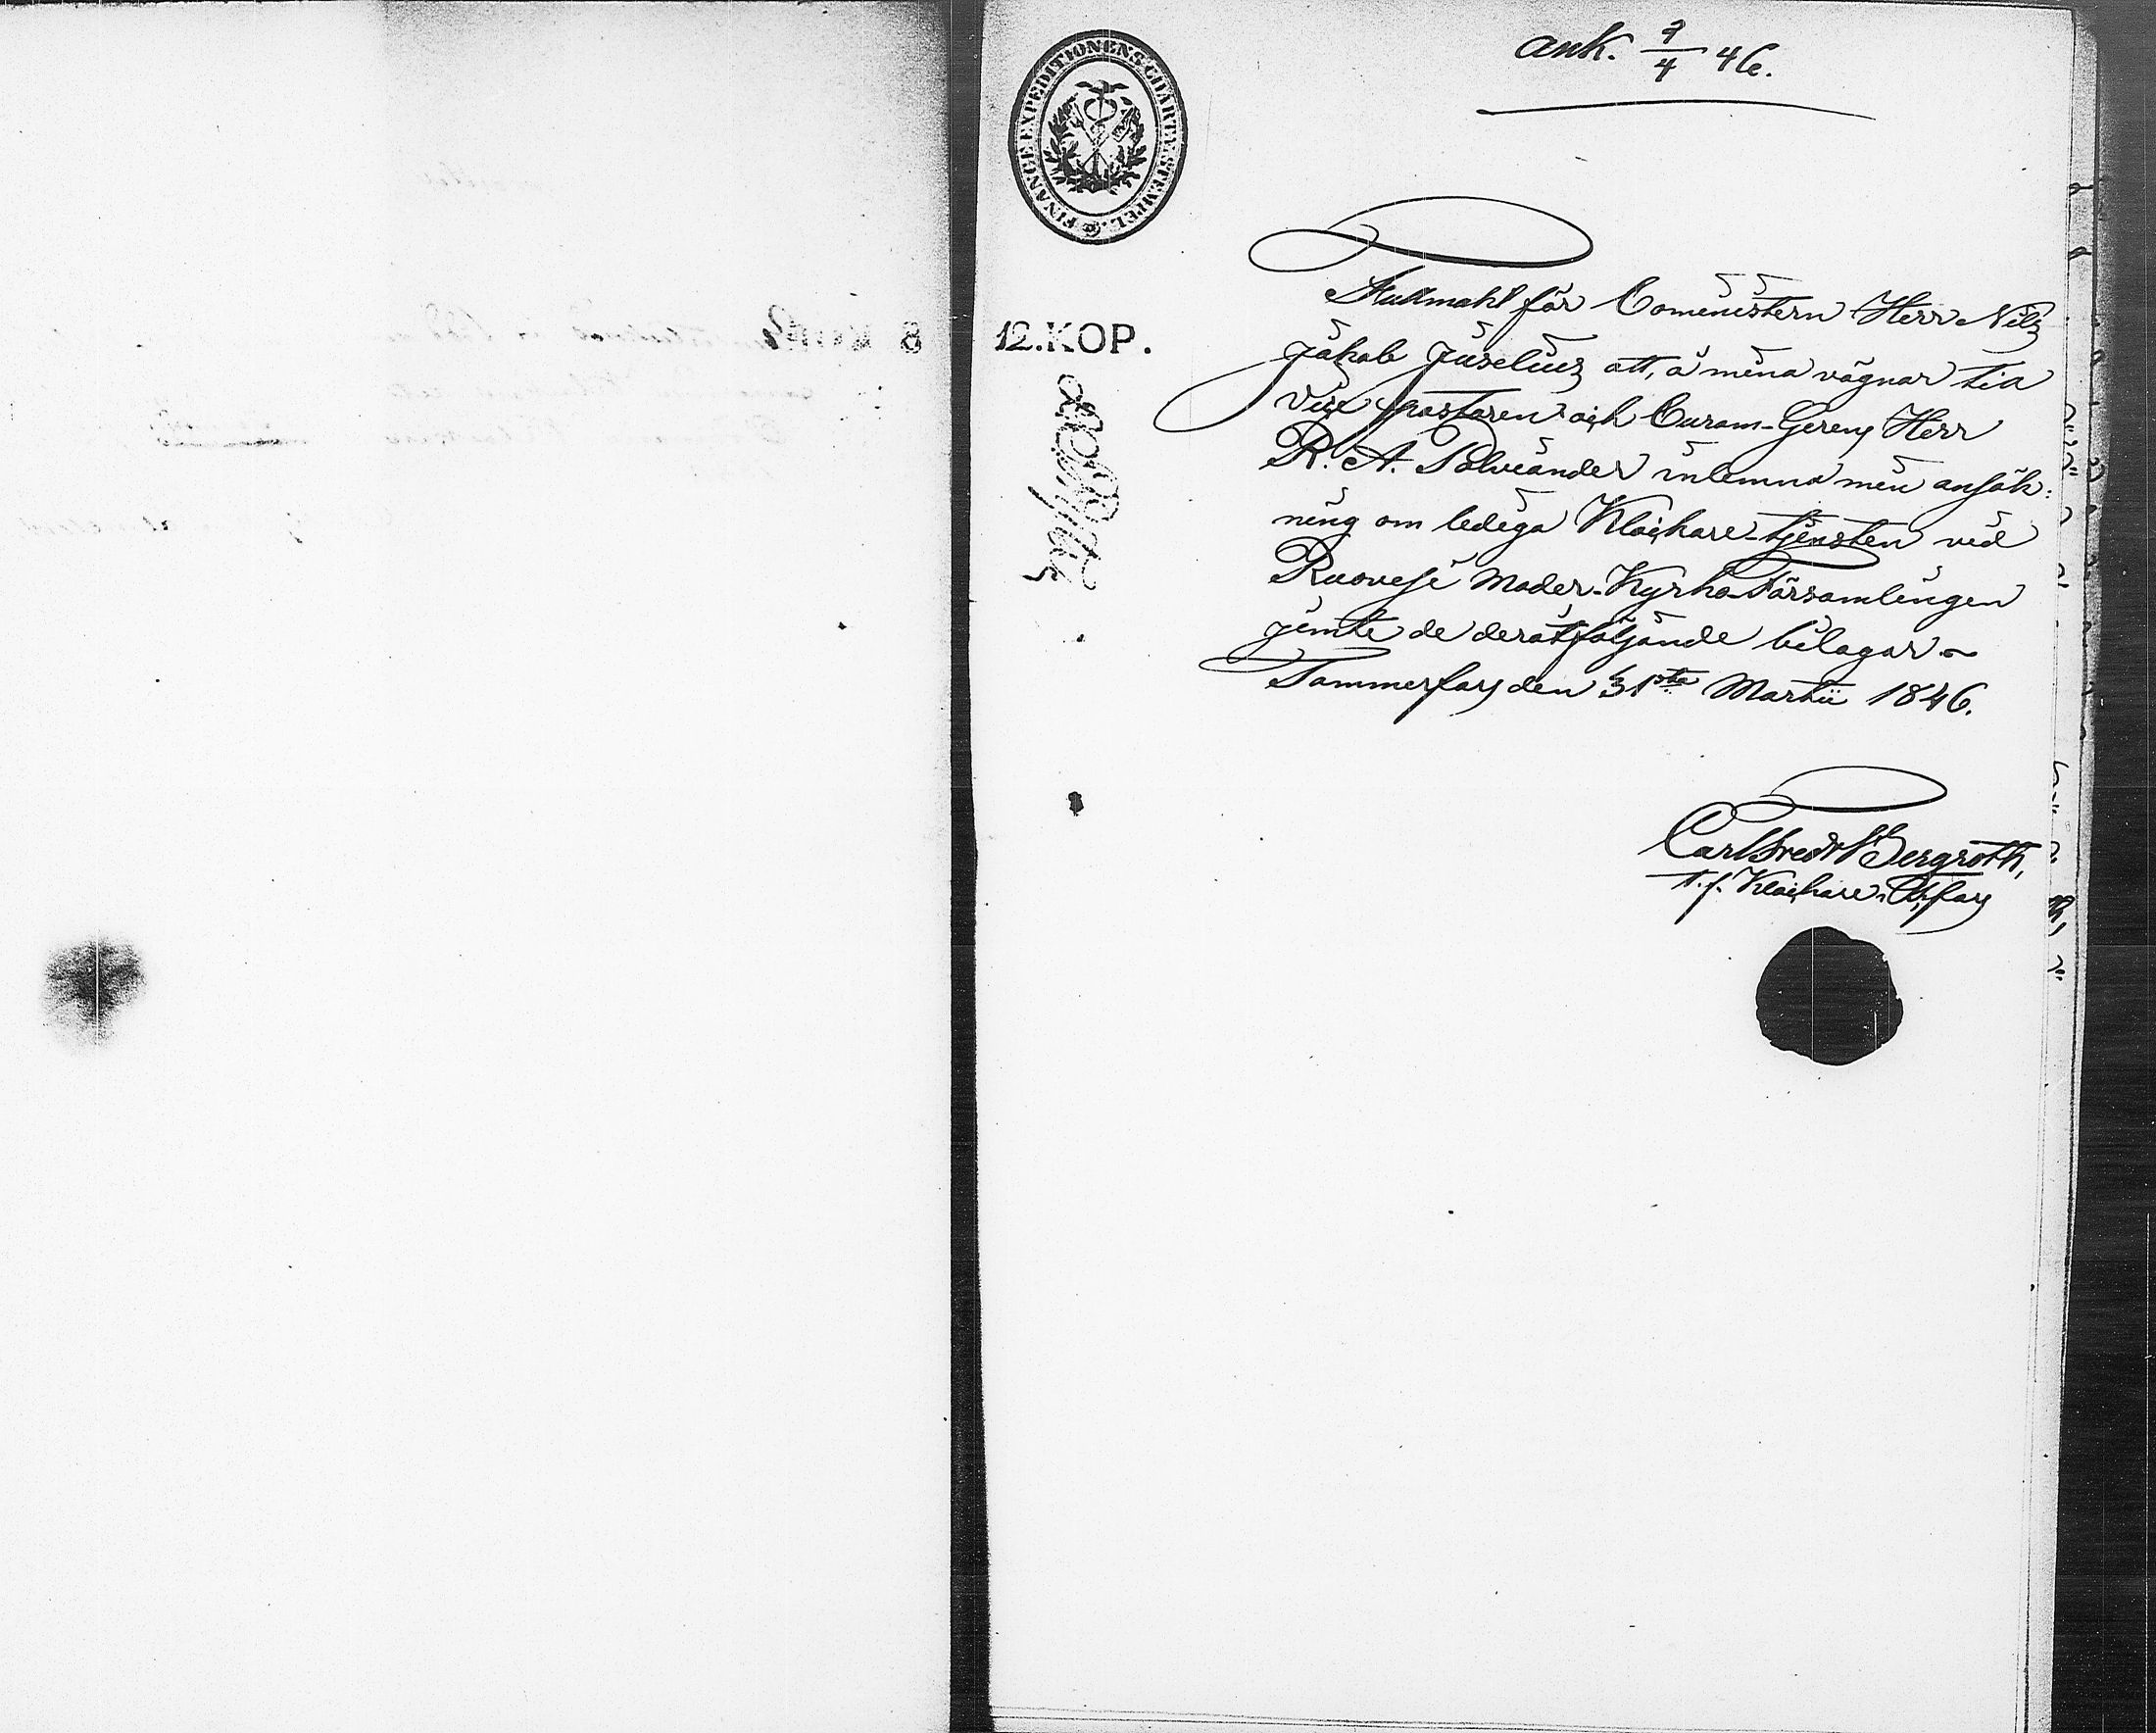 ank. 7/4 46.
FINANCE EXPEDITIONENS CHARTÆ STEMPEL.
12.KOP.
Fullmakt för Cominestern Herr Nils
Jakob Juselius att, å mina vägnar till
Vice pastoren och Curam-Gerens Herr
R. A. Polviander inlemna min ansök:
ning om lediga Klockare-tjensten vid
Ruovesi Moder-Kyrko-Församlingen
jemte de deråtföljande bilagor
Tammerfors den 31sta Martii 1846.
Carl Fredr Bergroth,
t. f. Klockare